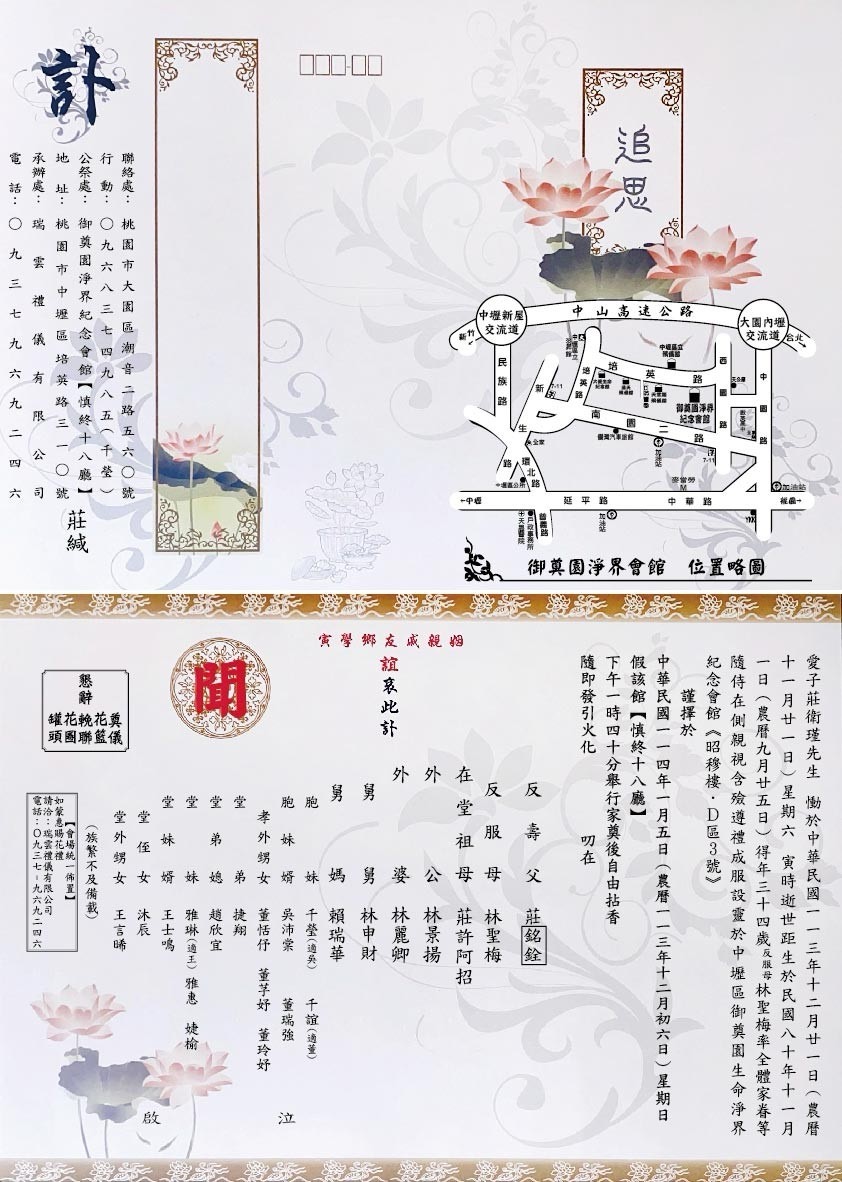 訃
聯絡處：桃園市大園區潮音二路五六○號
行動：○九六八三七四九八五（千瑩）
公祭處：御奠園淨界紀念會館【慎終十八廳】
地址：桃園市中壢區培英路三一○號
承辦處：瑞雲禮儀有限公司
電話：○九三七九六九二四六
莊緘
追思
中山高速公路
中壢新屋交流道
大園內壢交流道
新竹
台北
民族路
新生路
培英路
培英路
南園二路
西園路
中園路
環北路
延平路
中華路
中壢區立殯儀館
御奠園淨界紀念會館
7-11
全家
7-11
加油站
麥當勞
M
加油站
加油站
中壢區公所
戶政事務所
天晟醫院
←中壢
桃園→
御奠園淨界會館 位置略圖
愛子莊衛瑾先生 慟於中華民國一一三年十二月廿一日（農曆
十一月廿一日）星期六 寅時逝世距生於民國八十年十一月
一日（農曆九月廿五日）得年三十四歲反服母林聖梅率全體家眷等
隨侍在側親視含殮遵禮成服設靈於中壢區御奠園生命淨界
紀念會館《昭穆樓．D區3號》
謹擇於
中華民國一一四年一月五日（農曆一一三年十二月初六日）星期日
假該館【慎終十八廳】
下午一時四十分舉行家奠後自由拈香
隨即發引火化 叨在
姻親戚友鄉學寅
誼哀此訃
聞
反壽父 莊銘銓
反服母 林聖梅
在堂祖母 莊許阿招
外公 林景揚
外婆 林麗卿
舅舅 林申財
舅媽 賴瑞華
胞妹 千瑩（適吳） 千誼（適董）
胞妹婿 吳沛棠 董瑞強
孝外甥女 董恬伃 董芓妤 董玲妤
堂弟 捷翔
堂弟媳 趙欣宜
堂妹 雅琳（適王） 雅惠 婕榆
堂妹婿 王士鳴
堂侄女 沐辰
堂外甥女 王言晞
（族繁不及備載）
泣啟
懇辭
奠儀
花籃
輓聯
花圈
罐頭
【會場統一佈置】
如蒙惠賜花禮
請洽：瑞雲禮儀有限公司
電話：○九三七-九六九二四六